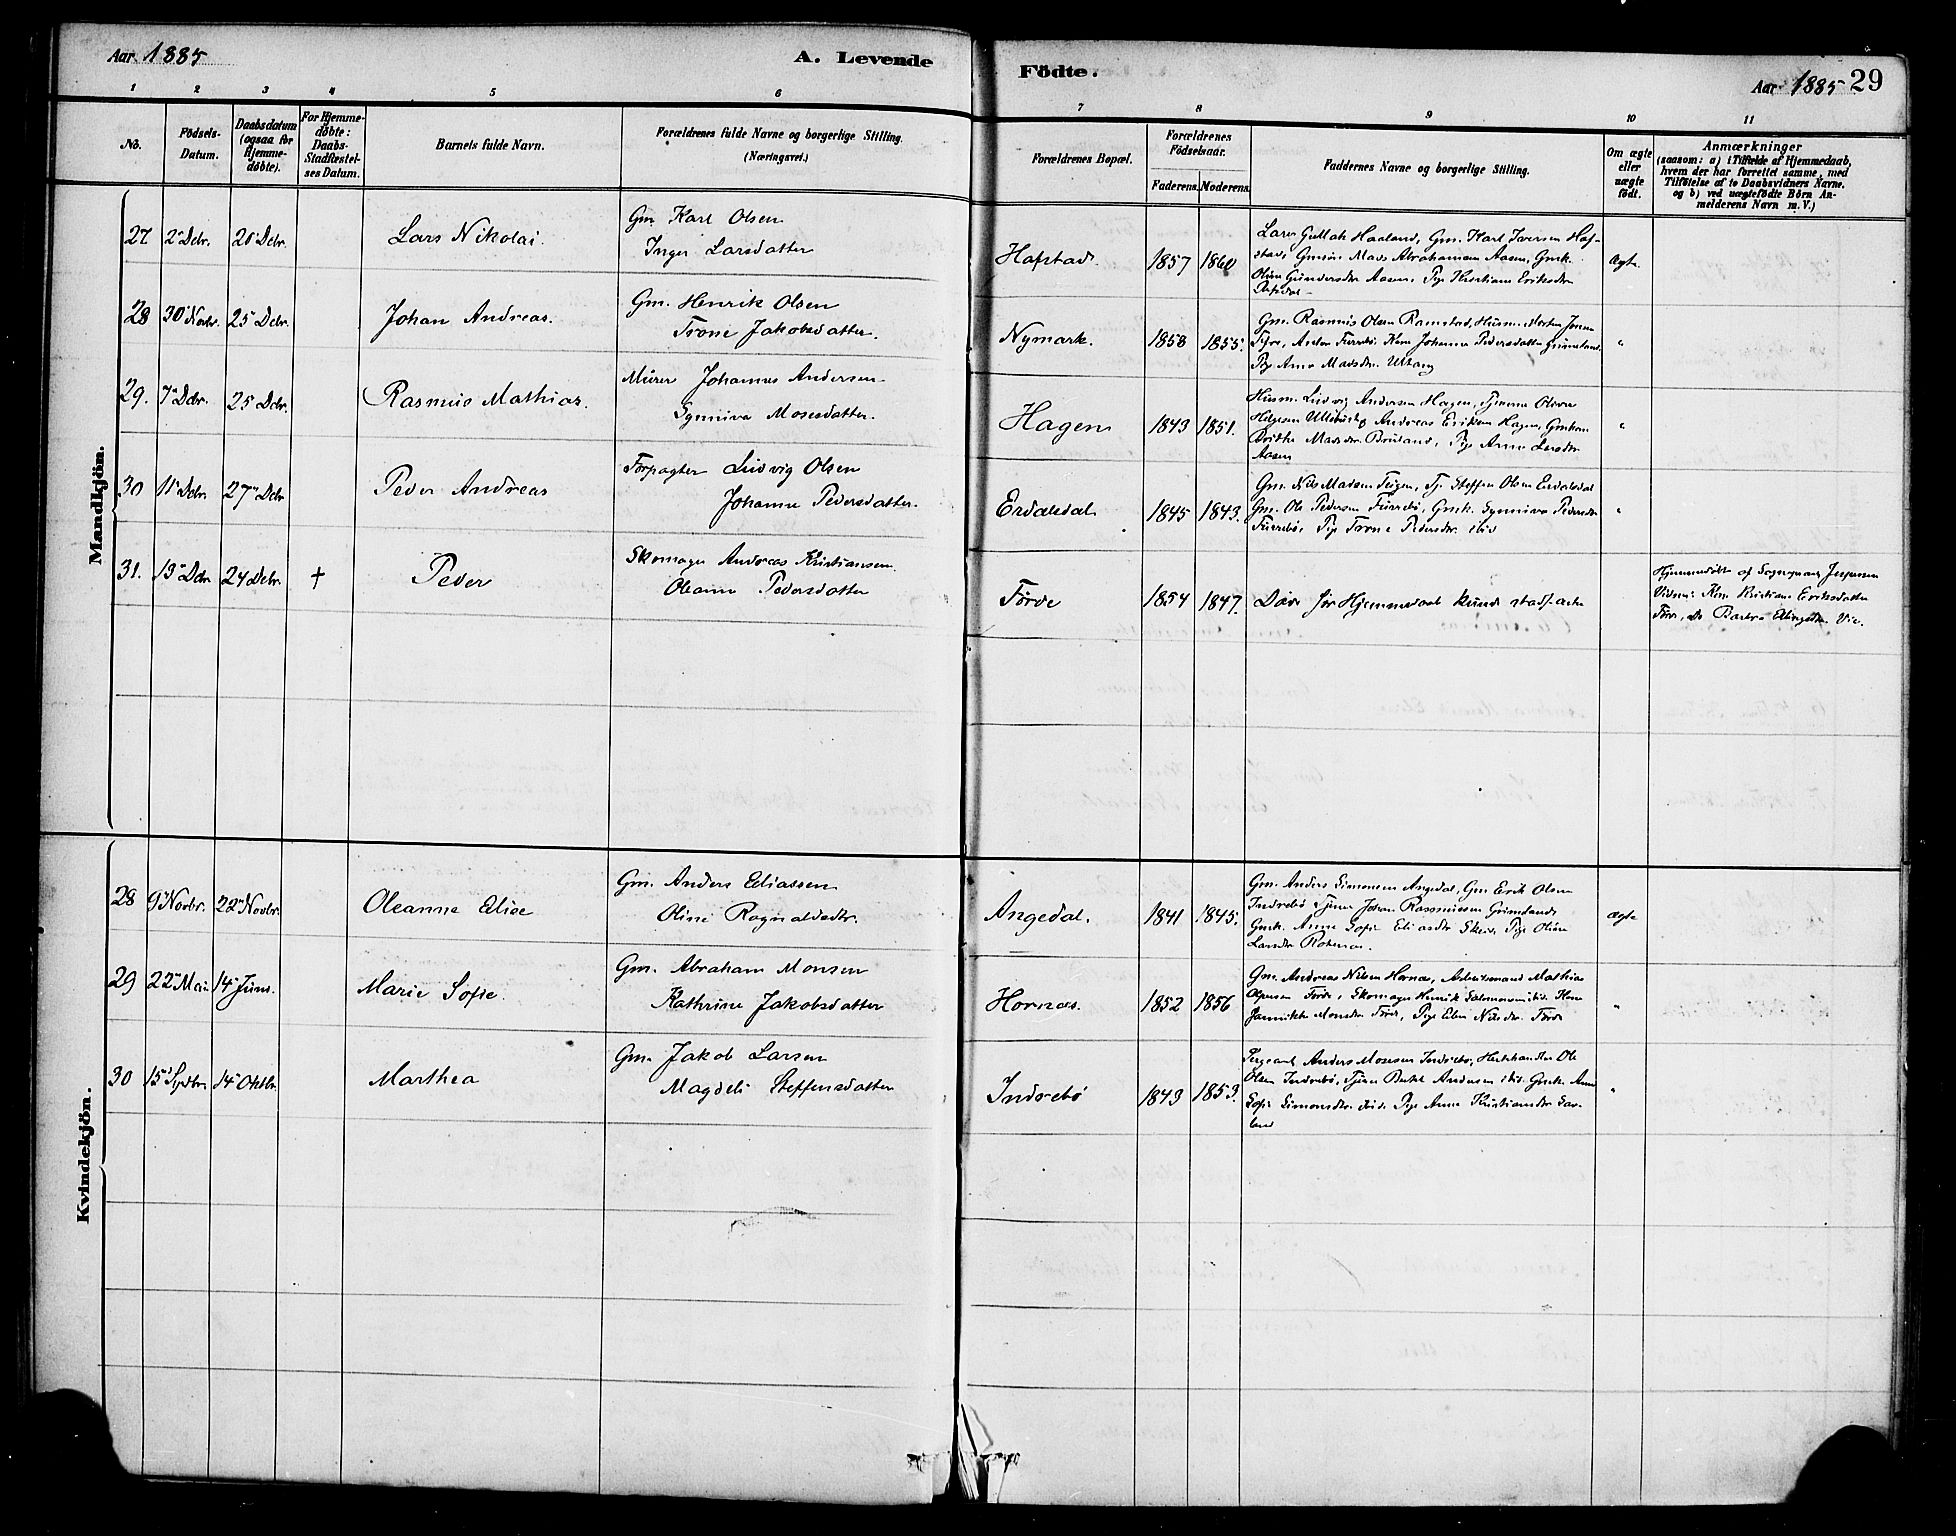 Aar 1885
A. Levende
Födte.
Aar 1885
29
1 2 3 4 5 6 7 8 9 10 11
No.
Födsels-
Datum.
Daabsdatum
(ogsaa for
Hjemme-
døbte).
For Hjemme-
døbte:
Daabs-
Stadfæstel-
ses Datum.
Barnets fulde Navn.
Forældrenes fulde Navne og borgerlige Stilling.
(Næringsvei.)
Forældrenes Bopæl.
Forældrenes
Födselsaar.
Faderens. Moderens.
Faddernes Navne og borgerlige Stilling.
Om ægte
eller
uægte
født.
Anmærkninger
(saasom: a) i Tilfælde af Hjemmedaab,
hvem der har forrettet samme, med
Tilføielse af to Daabsvidners Navne.
og b) ved uægtefødte Börn An-
melderens Navn m. V.)
Mandkjön.
27 2 Dcbr. 26 Dcbr. Lars Nikolai.
Gm. Karl Olsen
Inger Larsdatter
Hafstad. 1857 1860
Lars Gullak Haaland, Gm. Karl Iversen Haf-
stad, Mads Abrahamsen Aasen, Gmk.
Oline Gundersdtr Aasen, Pige Kristiane Eriksdtr
Ægte.
28 30 Novbr. 25 Dcbr. Johan Andreas.
Gm. Henrik Olsen
Trone Jakobsdatter.
Nymark. 1858 1855.
Gm. Rasmus Olsen Ramstad, Husm. Morten
Anders Furrebø, Kone Johanne Pedersdatter
Pige Anne Madsdtr.
"
29. 7 Dcbr. 25 Dcbr. Rasmus Mathias.
Murer Johannes Andersen
Synniva Mosesdatter.
Hagen 1843 1851.
Husm. Ludvig Andersen Hagen, Tjener Oliver
Helgesen Andreas Eriksen Hagen,
Brithe Madsdtr Bruland, Pige Anne Larsdtr
Aasen
"
30 11 Dcbr. 27 Dcbr Peder Andreas
Forpagter Ludvig Olsen
Johanne Pedersdatter.
Erdalsdal 1845 1843.
Gm. Nils Madsen Teigen, Tj. Steffen Olsen Erdalsdal
Gm. Ole Pedersen Furrebø, Gmk. Synniva Pedersdtr
Furrebø, Pige Trone Pedersdtr. ibid
"
31. 13 Dcbr 24 Dcbr. † Peder
Skomager Andreas Kristiansen
Oleanne Pedersdatter
Førde 1854 1847.
Døde før Hjemmedaab kunde stadfæstes
Hjemmedøbt af Sogneprest Jespersen
Vidner: Kone Kristiane Eriksdatter
Førde, Do Barbro Elingsdtr. Vie.
Kvindekjön.
28 9 Novbr. 22 Novbr. Oleanne Elise
Gm. Anders Eliassen
Oline Ragnaldsdtr.
Angedal. 1841 1845.
Gm. Anders Simonsen Angedal, Gm Erik Olsen
Indrebø Tjener Johan Rasmussen Grimland
Gmk. Anne Sofie Eliasdtr Skei, Pige Oline
Larsdtr
ægte
29 22 Mai 14 Juni. Marie Sofie.
Gm. Abraham Monsen
Kathrine Jakobsdatter
Hornæs. 1852 1856
Gm. Andreas Nilsen Hornæs, Arbeidsmand Mathias
Førde, Skomager Henrik Salomonsen ibid. Kone
Jannikke Monsdtr Førde, Pige Eline Nilsdtr. Førde
"
30 15 Sptbr 14 Oktbr Marthea
Gm. Jakob Larsen
Magdeli Steffensdatter
Indrebø 1843 1853.
Sergeant Anders Monsen Indrebø, Ole
Olsen Indrebø, Tjener Andersen ibid. Gmk. Anne
Sofie Simonsdtr. ibid. Pige Anne Kristiansdtr Sav-
land
"